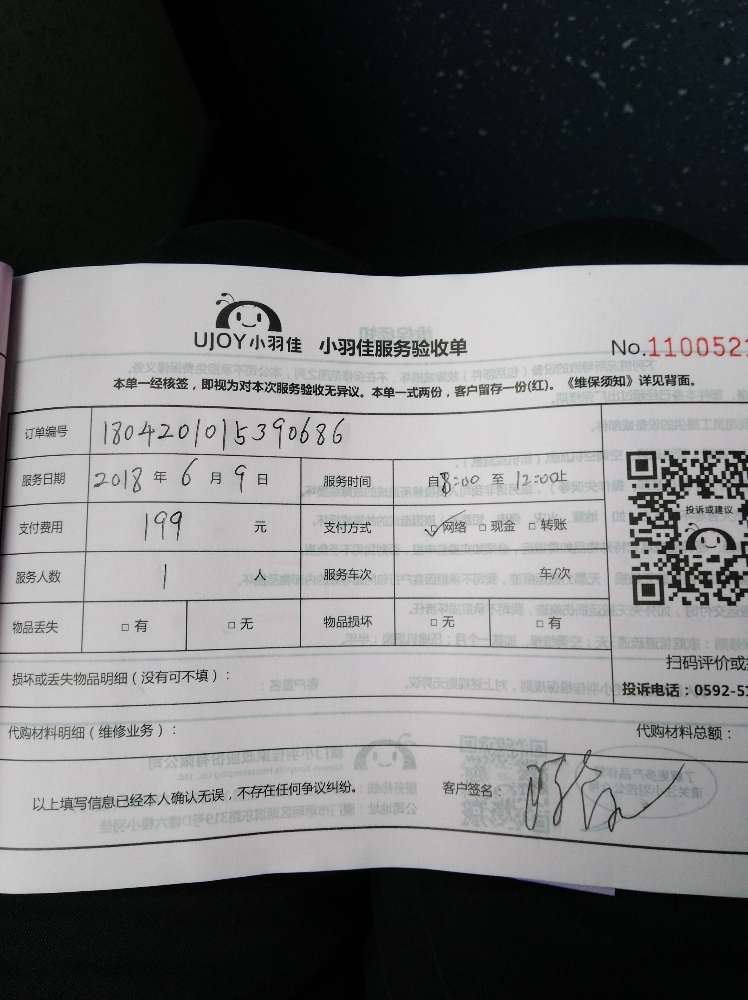 UJOY小羽佳 小羽佳服务验收单 No.1100521
本单一经核签，即视为对本次服务验收无异议。本单一式两份，客户留存一份(红)。《维保须知》详见背面。
订单编号 1804201015390686
服务日期 2018 年 6 月 9 日 服务时间 自8:00 至 12:00止
投诉或建议
支付费用 199 元 支付方式 ☑网络 □现金 □转账
服务人数 1 人 服务车次 车/次
物品丢失 □有 □无 物品损坏 □无 □有
扫码评价或
损坏或丢失物品明细（没有可不填）：
投诉电话：0592-51
代购材料明细（维修业务）： 代购材料总额：
以上填写信息已经本人确认无误，不存在任何争议纠纷。 客户签名：